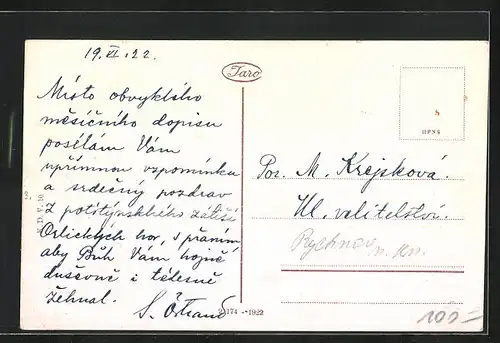 19. VI. 22
Taro
Místo obvyklého
měsíčního dopisu
posílám Vám
upřímnou vzpomínku
a srdečný pozdrav
z potštýnského zátiší
Orlických hor, s přáním
aby Bůh Vám hojně
duševně i tělesně
žehnal.
S.
174 - 1922
Pos. M. Krejsková
Hl. velitelství
Rychnov n. Kn.
100=